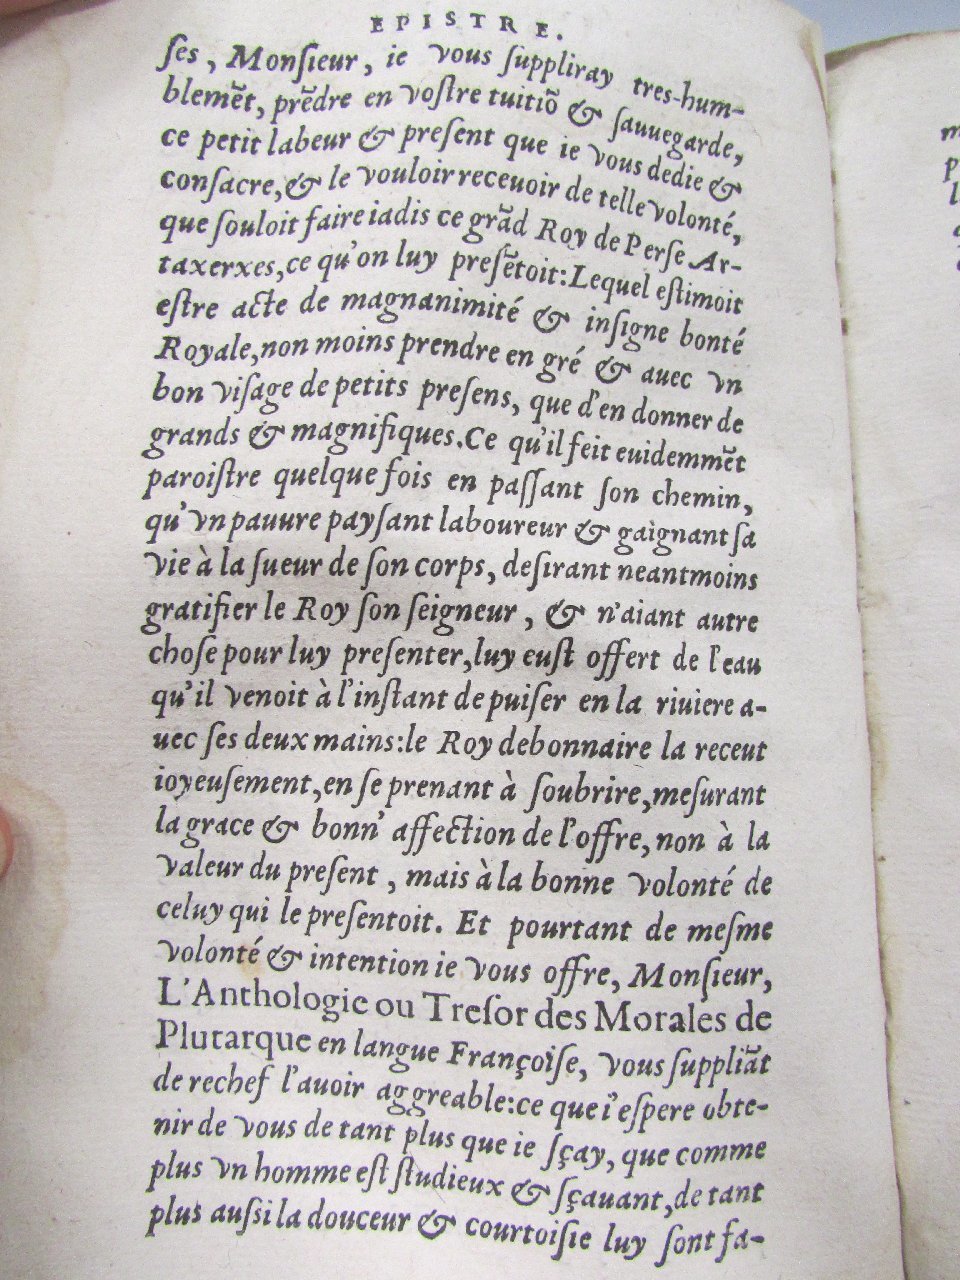 EPISTRE.
ſes, Monſieur, ie vous ſuppliray tres-hum-
blemẽt, prẽdre en voſtre tuitiõ & ſauuegarde,
ce petit labeur & preſent que ie vous dedie &
conſacre, & le vouloir receuoir de telle volonté,
que ſouloit faire iadis ce grãd Roy de Perſe Ar-
taxerxes, ce qu'on luy preſẽtoit: Lequel eſtimoit
eſtre acte de magnanimité & inſigne bonté
Royale, non moins prendre en gré & auec vn
bon viſage de petits preſens, que d'en donner de
grands & magnifiques. Ce qu'il feit euidemmẽt
paroiſtre quelque fois en paſſant ſon chemin,
qu'vn pauure payſant laboureur & gaignant ſa
vie à la ſueur de ſon corps, deſirant neantmoins
gratifier le Roy ſon ſeigneur, & n'aiant autre
choſe pour luy preſenter, luy euſt offert de l'eau
qu'il venoit à l'inſtant de puiſer en la riuiere a-
uec ſes deux mains: le Roy debonnaire la receut
ioyeuſement, en ſe prenant à ſoubrire, meſurant
la grace & bonn' affection de l'offre, non à la
valeur du preſent, mais à la bonne volonté de
celuy qui le preſentoit. Et pourtant de meſme
volonté & intention ie vous offre, Monſieur,
L'Anthologie ou Treſor des Morales de
Plutarque en langue Françoiſe, vous ſuppliãt
de rechef l'auoir aggreable: ce que i'eſpere obte-
nir de vous de tant plus que ie ſçay, que comme
plus vn homme eſt ſtudieux & ſçauant, de tant
plus auſsi la douceur & courtoiſie luy ſont fa-